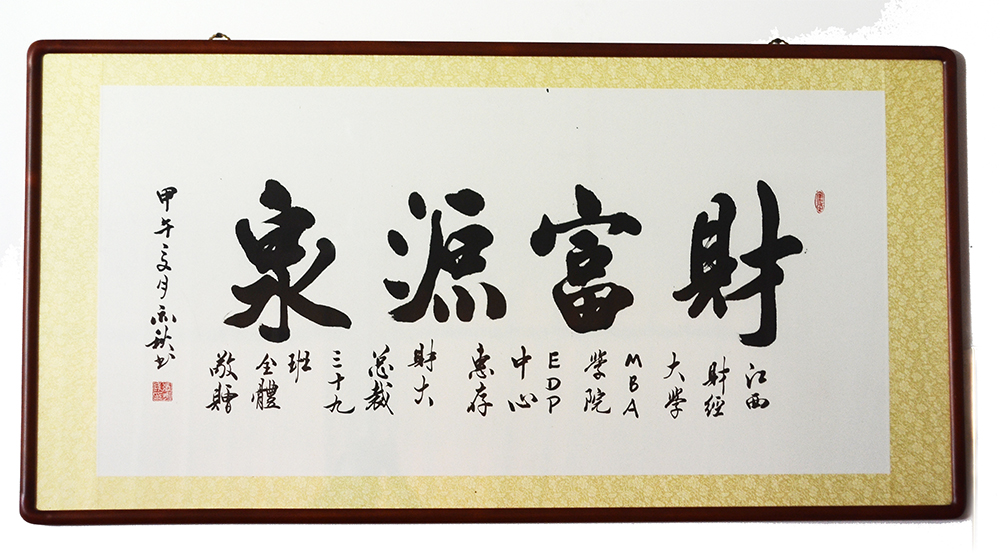 財富源泉
江西
財經
大學
MBA
學院
EDP
中心
惠存
財大
总裁
三十九
班
全體
敬贈
甲午夏月